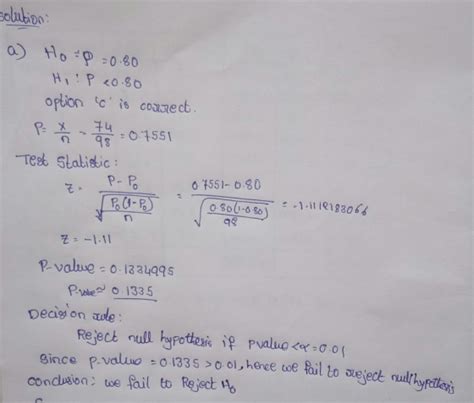 solution:
a) H₀ : p = 0.80
H₁ : P < 0.80
option 'c' is correct.
P = x/n - 74/98 = 0.7551
Test Statistic :
z = (P - P₀)/√(P₀(1-P₀)/n) = (0.7551-0.80)/√(0.80(1-0.80)/98) = -1.1118183066
z = -1.11
P-value = 0.1334995
P.value ≈ 0.1335
Decision rule:
Reject null hypothesis if pvalue < α = 0.01
since p.value = 0.1335 > 0.01, hence we fail to reject null hypothesis
conclusion: we fail to Reject H₀